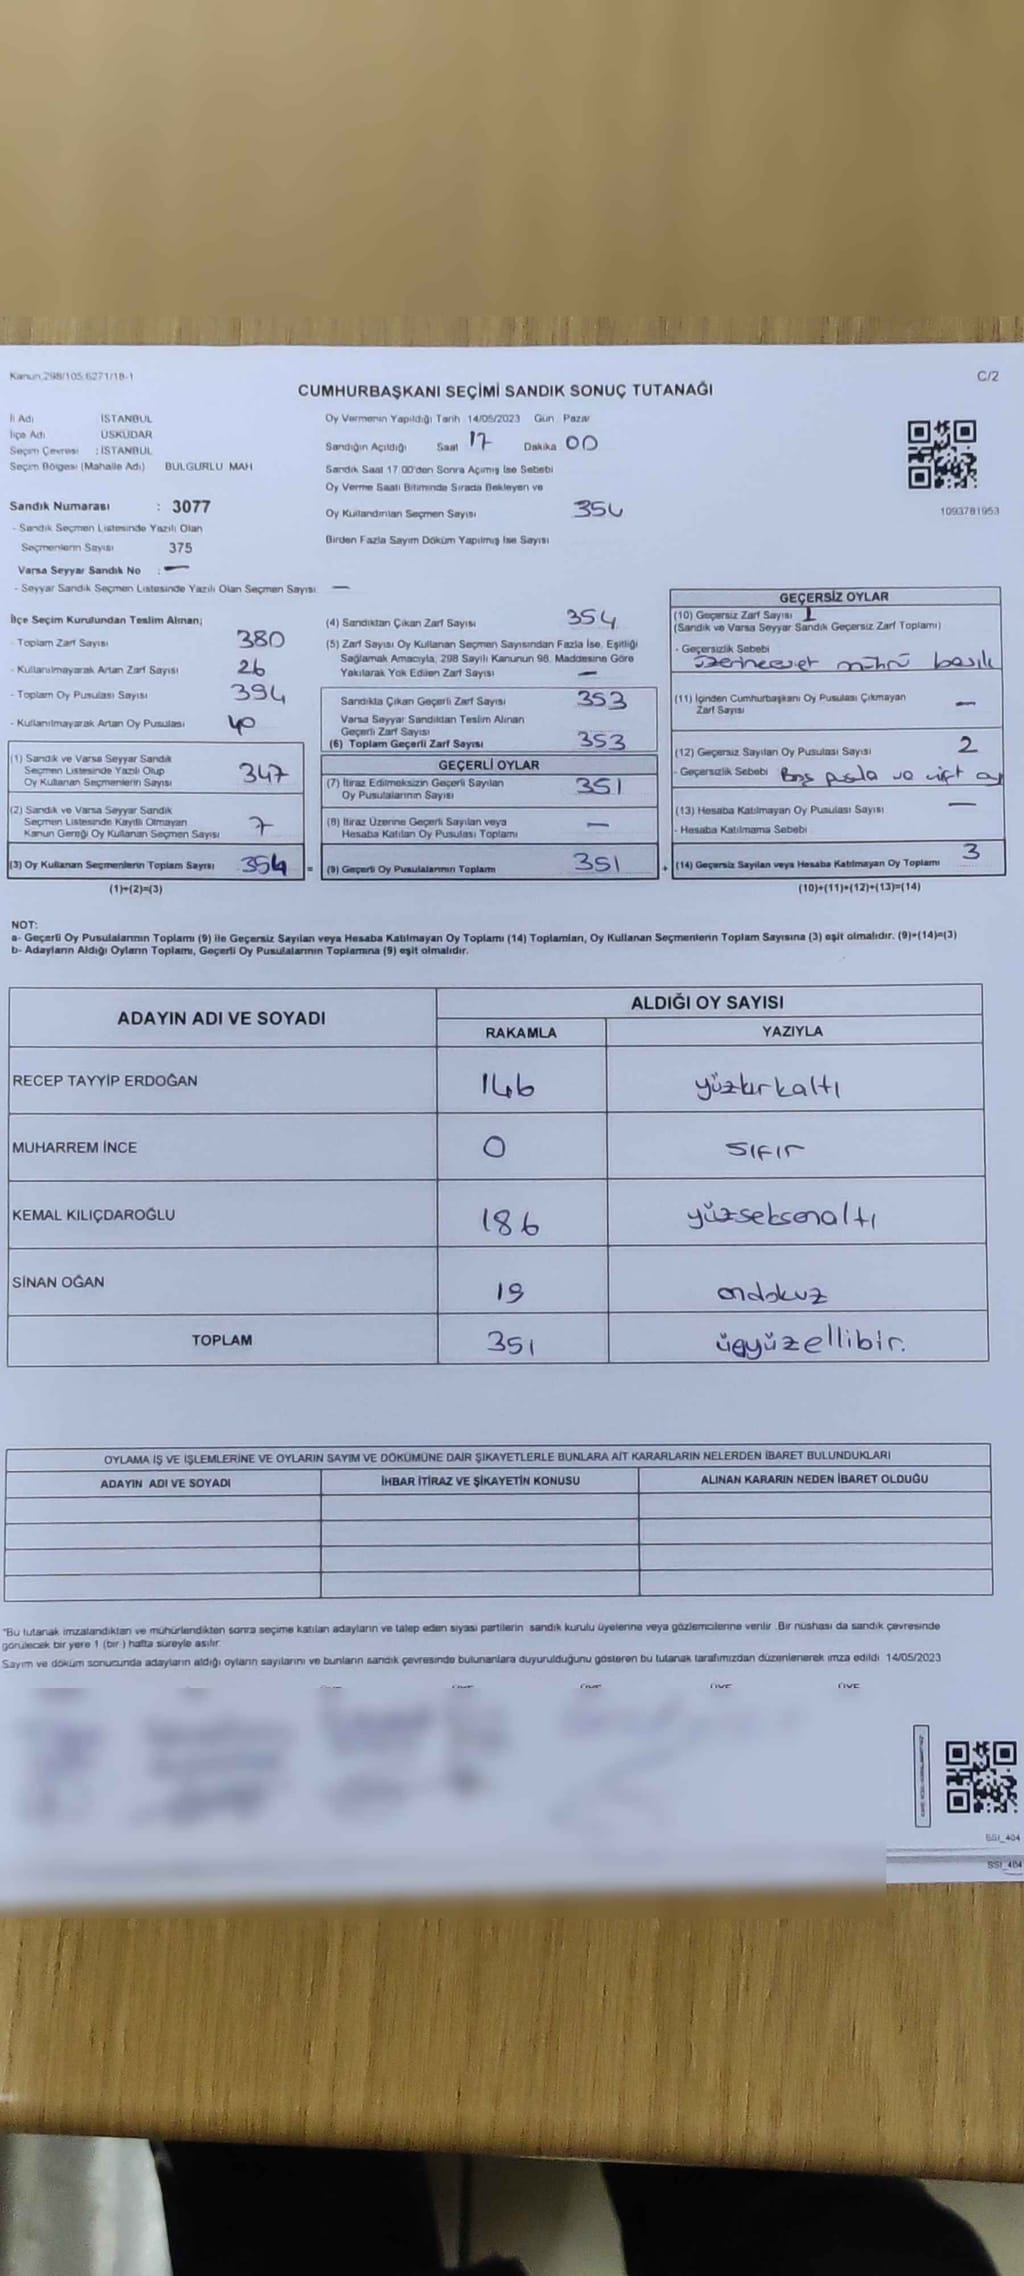 Kanun,298/105,6271/18-1
C/2
CUMHURBAŞKANI SEÇİMİ SANDIK SONUÇ TUTANAĞI
İl Adı İSTANBUL
İlçe Adı ÜSKÜDAR
Seçim Çevresi : İSTANBUL
Seçim Bölgesi (Mahalle Adı) BULGURLU MAH
Sandık Numarası : 3077
- Sandık Seçmen Listesinde Yazılı Olan
Seçmenlerin Sayısı 375
Varsa Seyyar Sandık No : —
- Seyyar Sandık Seçmen Listesinde Yazılı Olan Seçmen Sayısı —
Oy Vermenin Yapıldığı Tarih 14/05/2023 Gün Pazar
Sandığın Açıldığı Saat 17 Dakika 00
Sandık Saat 17.00'den Sonra Açımış İse Sebebi
Oy Verme Saati Bitiminde Sırada Bekleyen ve
Oy Kullandırılan Seçmen Sayısı 354
Birden Fazla Sayım Döküm Yapılmış İse Sayısı
1093781953
İlçe Seçim Kurulundan Teslim Alınan;
- Toplam Zarf Sayısı 380
- Kullanılmayarak Artan Zarf Sayısı 26
- Toplam Oy Pusulası Sayısı 394
- Kullanılmayarak Artan Oy Pusulası 40
(1) Sandık ve Varsa Seyyar Sandık
Seçmen Listesinde Yazılı Olup
Oy Kullanan Seçmenlerin Sayısı 347
(2) Sandık ve Varsa Seyyar Sandık
Seçmen Listesinde Kayıtlı Olmayan
Kanun Gereği Oy Kullanan Seçmen Sayısı 7
(3) Oy Kullanan Seçmenlerin Toplam Sayısı 354 =
(1)+(2)=(3)
(4) Sandıktan Çıkan Zarf Sayısı 354
(5) Zarf Sayısı Oy Kullanan Seçmen Sayısından Fazla İse, Eşitliği
Sağlamak Amacıyla, 298 Sayılı Kanunun 98. Maddesine Göre
Yakılarak Yok Edilen Zarf Sayısı —
Sandıkla Çıkan Geçerli Zarf Sayısı 353
Varsa Seyyar Sandıktan Teslim Alınan
Geçerli Zarf Sayısı
(6) Toplam Geçerli Zarf Sayısı 353
GEÇERLİ OYLAR
(7) İtiraz Edilmeksizin Geçerli Sayılan
Oy Pusulalarının Sayısı 351
(8) İtiraz Üzerine Geçerli Sayılan veya
Hesaba Katılan Oy Pusulası Toplamı —
(9) Geçerli Oy Pusulalarının Toplamı 351 +
GEÇERSİZ OYLAR
(10) Geçersiz Zarf Sayısı 1
(Sandık ve Varsa Seyyar Sandık Geçersiz Zarf Toplamı)
- Geçersizlik Sebebi
mührü basılı
(11) İçinden Cumhurbaşkanı Oy Pusulası Çıkmayan
Zarf Sayısı —
(12) Geçersiz Sayılan Oy Pusulası Sayısı 2
- Geçersizlik Sebebi Boş pusula ve çift oy
(13) Hesaba Katılmayan Oy Pusulası Sayısı —
- Hesaba Katılmama Sebebi
(14) Geçersiz Sayılan veya Hesaba Katılmayan Oy Toplamı 3
(10)+(11)+(12)+(13)=(14)
NOT:
a- Geçerli Oy Pusulalarının Toplamı (9) ile Geçersiz Sayılan veya Hesaba Katılmayan Oy Toplamı (14) Toplamları, Oy Kullanan Seçmenlerin Toplam Sayısına (3) eşit olmalıdır. (9)+(14)=(3)
b- Adayların Aldığı Oyların Toplamı, Geçerli Oy Pusulalarının Toplamına (9) eşit olmalıdır.
ADAYIN ADI VE SOYADI ALDIĞI OY SAYISI
RAKAMLA YAZIYLA
RECEP TAYYİP ERDOĞAN 146 yüzkırkaltı
MUHARREM İNCE 0 sıfır
KEMAL KILIÇDAROĞLU 186 yüzseksenaltı
SİNAN OĞAN 19 ondokuz
TOPLAM 351 üçyüzellibir.
OYLAMA İŞ VE İŞLEMLERİNE VE OYLARIN SAYIM VE DÖKÜMÜNE DAİR ŞİKAYETLERLE BUNLARA AİT KARARLARIN NELERDEN İBARET BULUNDUKLARI
ADAYIN ADI VE SOYADI İHBAR İTİRAZ VE ŞİKAYETİN KONUSU ALINAN KARARIN NEDEN İBARET OLDUĞU
"Bu tutanak imzalandıktan ve mühürlendikten sonra seçime katılan adayların ve talep eden siyasi partilerin sandık kurulu üyelerine veya gözlemcilerine verilir. Bir nüshası da sandık çevresinde
görülecek bir yere 1 (bir) hafta süreyle asılır.
Sayım ve döküm sonucunda adayların aldığı oyların sayılarını ve bunların sandık çevresinde bulunanlara duyurulduğunu gösteren bu tutanak tarafımızdan düzenlenerek imza edildi 14/05/2023
SSI_404
SSI_404